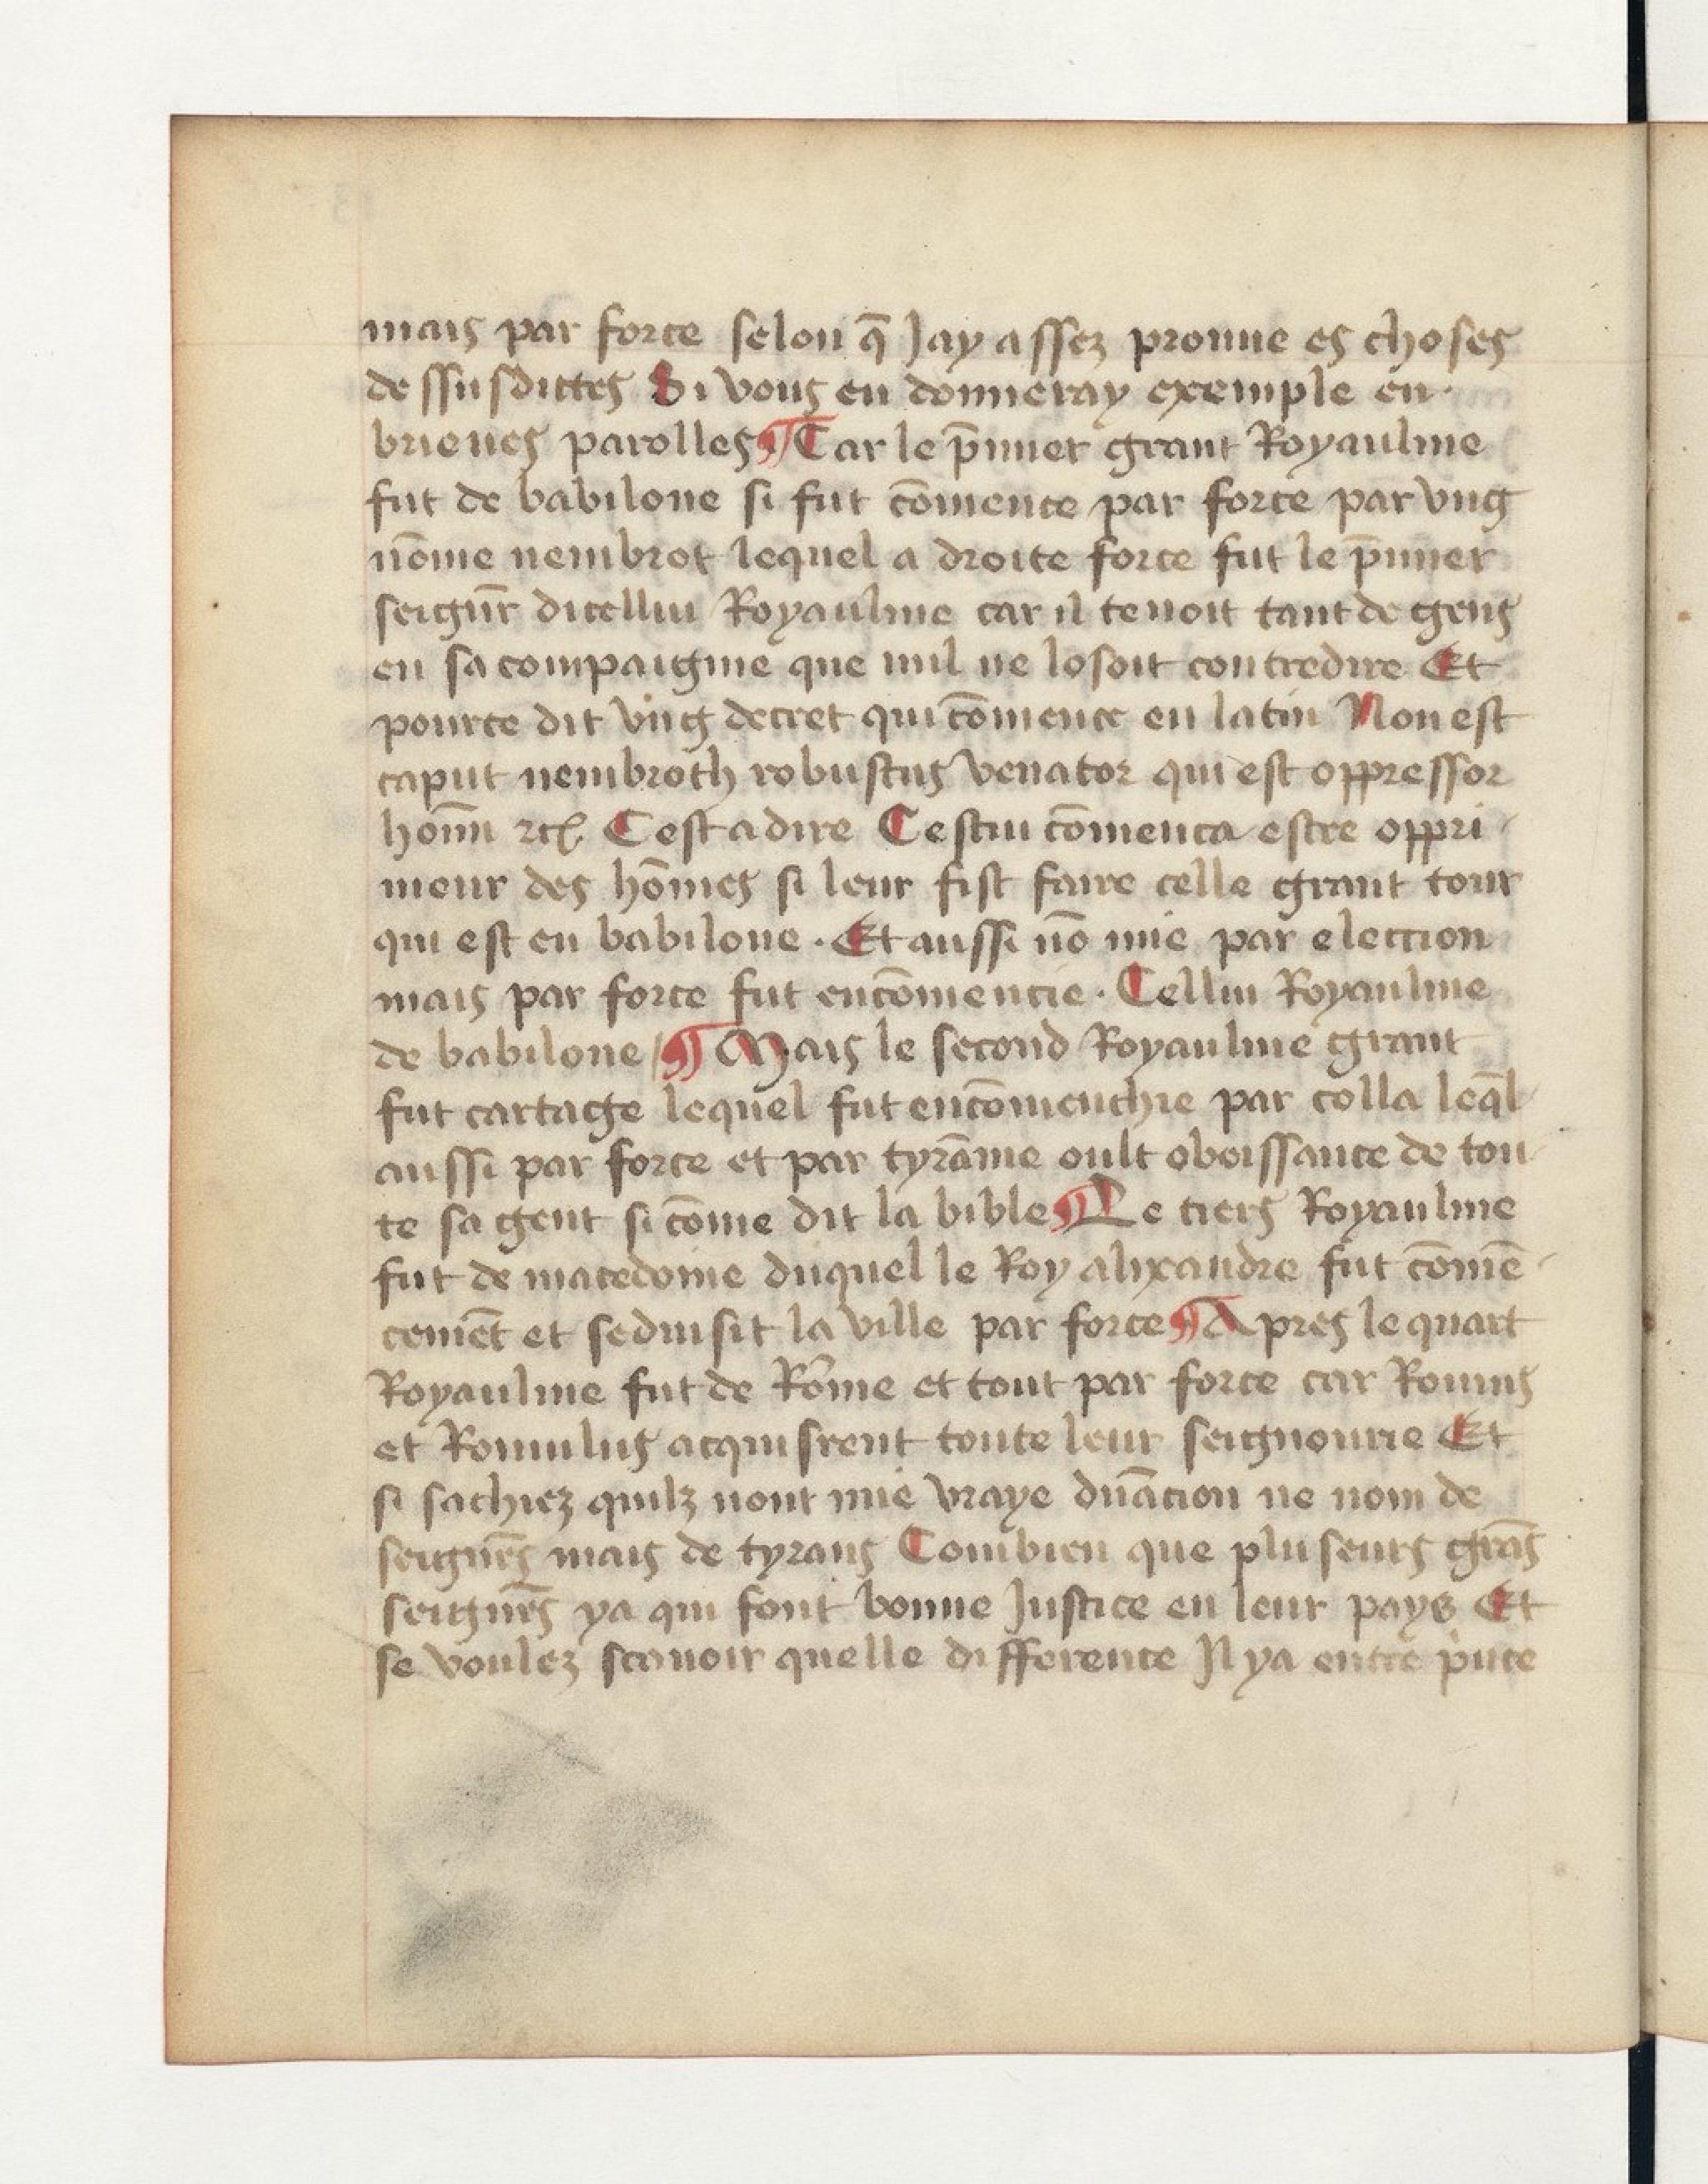 mais par force selon q̄ Jay assez prouue es choses
dessusdittes Si vous en donneray exemple en
brieues parolles ¶ Car le p̄mier grant Royaulme
fut de babilone si fut cōmence par force par vng
nōme nembrot lequel a droite force fut le p̄mier
seignr̄ dicellui Royaulme car il tenoit tant de gens
en sa compaignie que nul ne losoit contredire Et
pource dit vng decret qui cōmence en latin Non est
caput nembroth robustus venator qui est oppressor
hoīm ⁊c̃ Cest a dire Cestui cōmenca estre oppri
meur des hōmes si leur fist faire celle grant tour
qui est en babilone . Et aussi nō mie par election
mais par force fut encōmencie . Cellui Royaulme
de babilone / ¶ Mais le second Royaulme grant
fut cartage lequel fut encōmenchie par colla leq̄l
aussi par force et par tyrānie oult oboissance de tou
te sa gent si cōme dit la bible ¶ Le tiers Royaulme
fut de macedoine duquel le Roy alixandre fut cōmē
cemēt et seduisit la ville par force ¶ Apres le quart
Royaulme fut de Rōme et tout par force car Romus
et Romulus acquisrent toute leur seignourie Et
si sachiez quilz nont mie vraye dn̄acion ne nom de
seignr̄s mais de tyrans Combien que pluseurs grās
seignr̄s ya qui font bonne Justice en leur pays Et
se voulez scauoir quelle difference Il ya entre puce